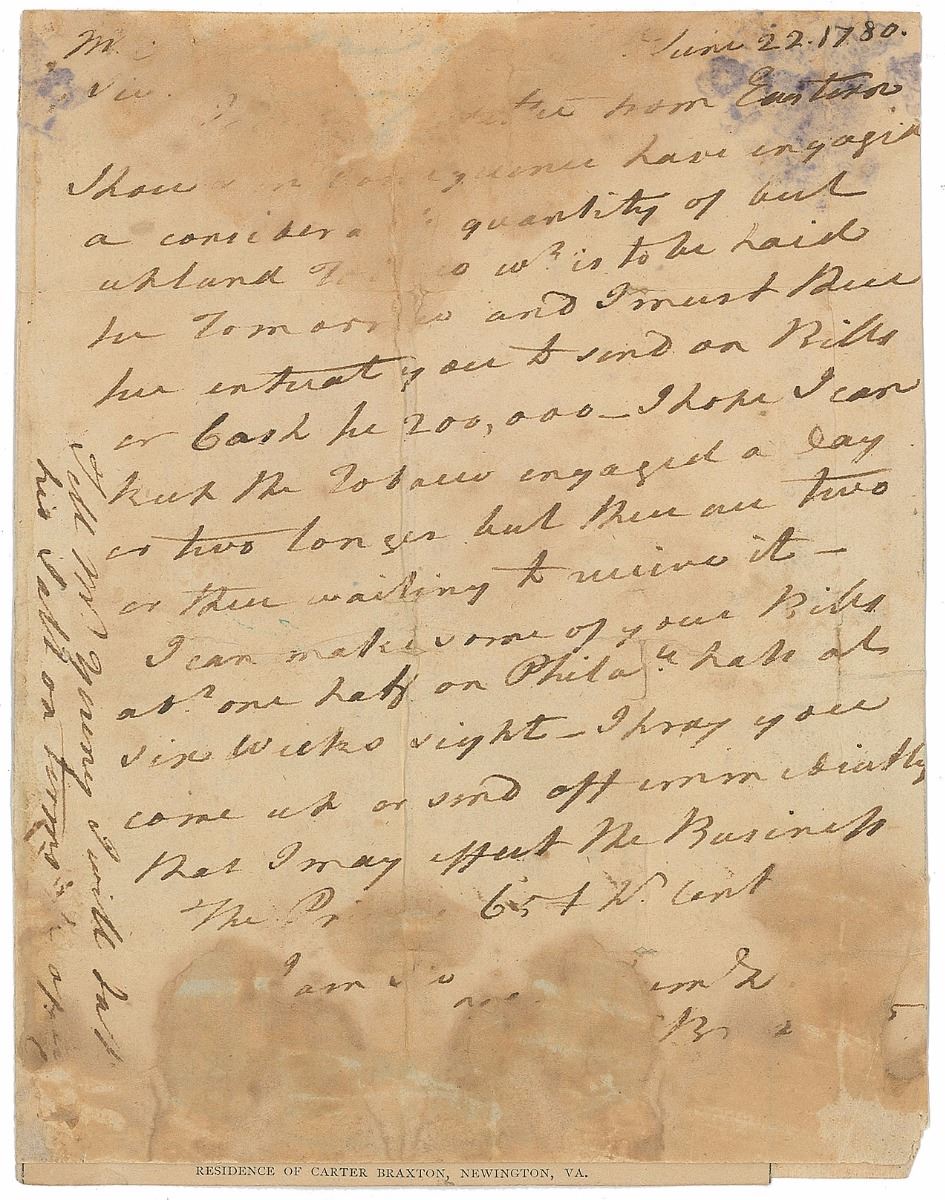 June 22. 1780.
Sir
from Eastern
I have in Consequence have engagd
a considera quantity of but
upland wh. is to be paid
for Tomorrow and I must there
fore intreat you to send on Bills
or Cash for 200,000 – I hope I can
keep the Tobacco engaged a Day
or two longer but there are two
or three waiting to receive it –
I can make some of your Bills
abt. one half on Phila. half at
six weeks sight – I pray you
come up or send off immediately
that I may effect the Business
The Pri 65£ pr. Cent
I am Sir
Br
Tell Mr. Young I will
his Salt on
RESIDENCE OF CARTER BRAXTON, NEWINGTON, VA.